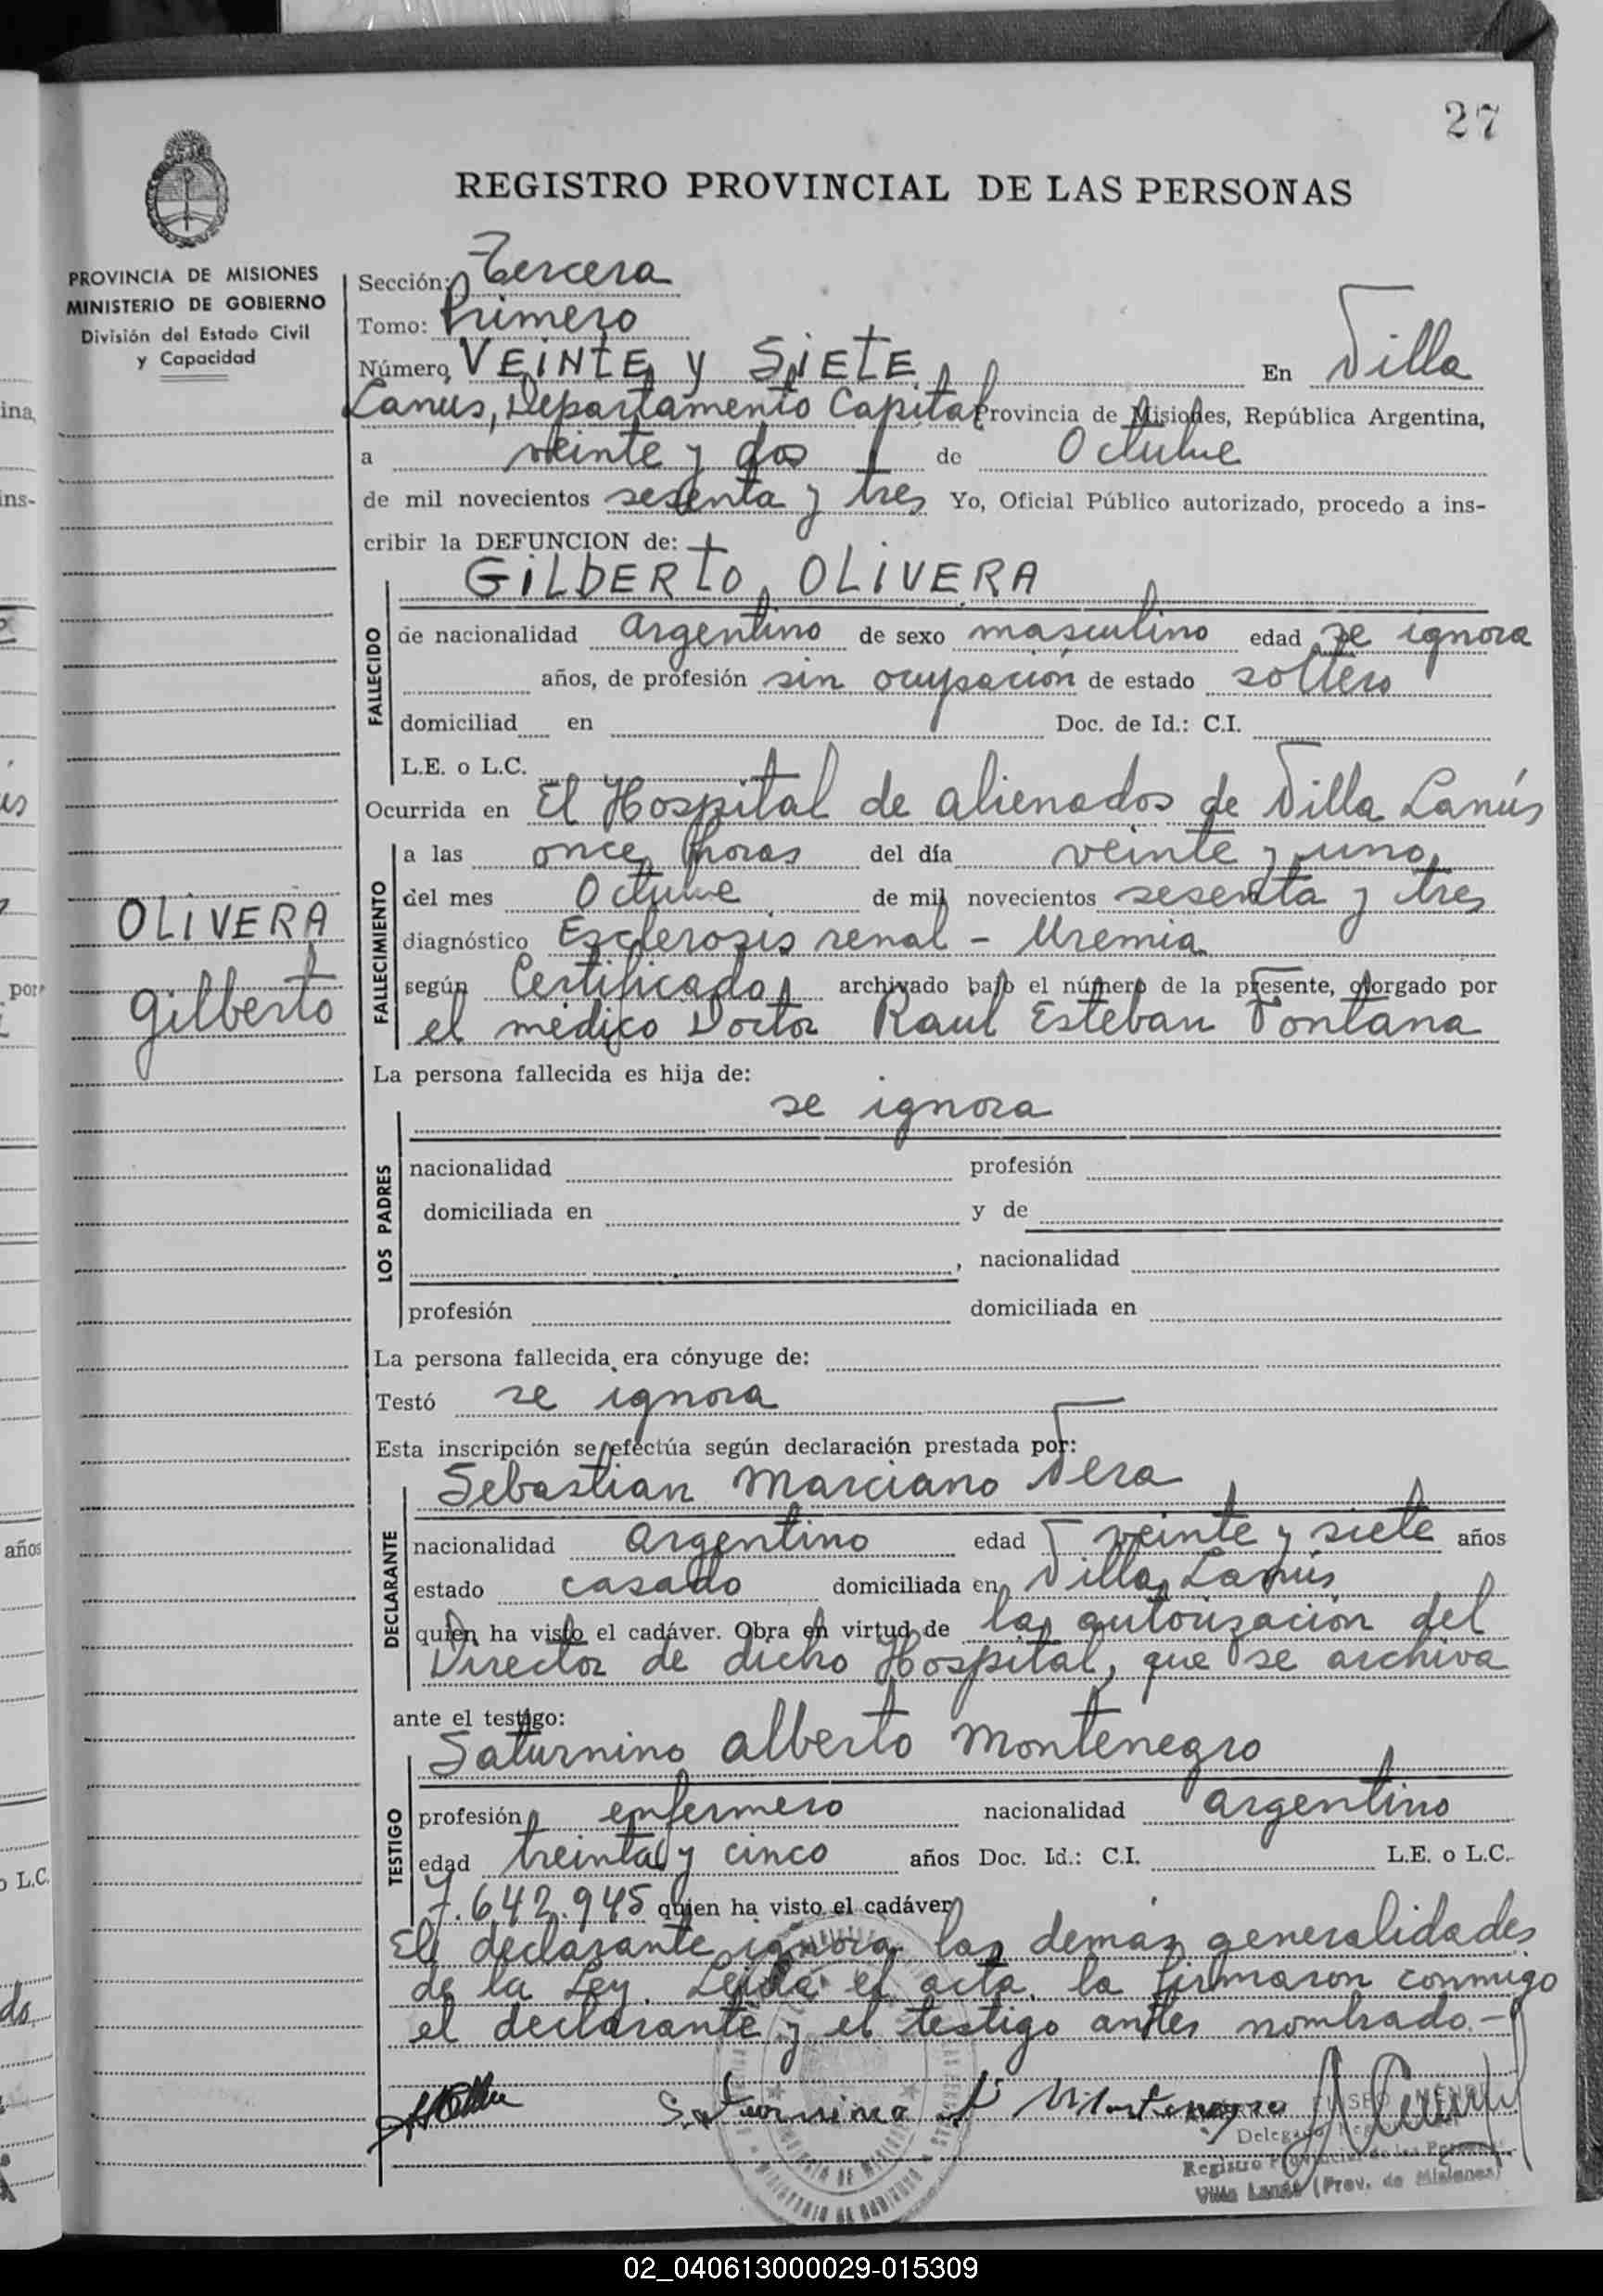 27
REGISTRO PROVINCIAL DE LAS PERSONAS
PROVINCIA DE MISIONES
MINISTERIO DE GOBIERNO
División del Estado Civil
y Capacidad
Sección: Tercera
Tomo: Primero
Número VEINTE y SIETE En Villa
Lanus, Departamento Capital Provincia de Misiones, República Argentina,
a veinte y dos de Octubre
de mil novecientos sesenta y tres Yo, Oficial Público autorizado, procedo a ins-
cribir la DEFUNCION de:
GILBERTO OLIVERA
FALLECIDO
de nacionalidad argentino de sexo masculino edad se ignora
años, de profesión sin ocupación de estado soltero
domiciliad en Doc. de Id.: C.I.
L.E. o L.C.
Ocurrida en El Hospital de alienados de Villa Lanús
FALLECIMIENTO
a las once horas del día veinte y uno
del mes Octubre de mil novecientos sesenta y tres
diagnóstico Esclerosis renal - Uremia
según Certificado archivado bajo el número de la presente, otorgado por
el médico Doctor Raul Esteban Fontana
OLIVERA
Gilberto
La persona fallecida es hija de:
se ignora
LOS PADRES
nacionalidad profesión
domiciliada en y de
, nacionalidad
profesión domiciliada en
La persona fallecida era cónyuge de:
Testó se ignora
Esta inscripción se efectúa según declaración prestada por:
Sebastian Marciano Vera
DECLARANTE
nacionalidad argentino edad veinte y siete años
estado casado domiciliada en Villa Lanús
quien ha visto el cadáver. Obra en virtud de la autorización del
Director de dicho Hospital, que se archiva
ante el testigo:
Saturnino alberto Montenegro
TESTIGO
profesión enfermero nacionalidad argentino
edad treinta y cinco años Doc. Id.: C.I. L.E. o L.C.
7.642.945 quien ha visto el cadáver
El declarante ignora las demas generalidades
de la Ley. Leida el acta, la firmaron conmigo
el declarante y el testigo antes nombrado.-
Saturnino A Montenegro
Registro Provincial de las Personas
Villa Lanús (Prov. de Misiones)
02_040613000029-015309